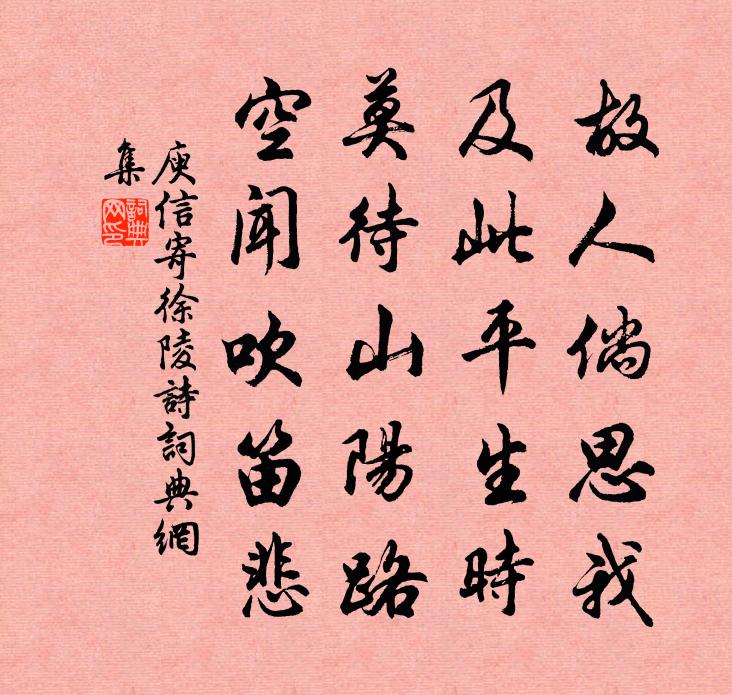 故人倘思我
及此平生時
莫待山陽路
空聞吹笛悲
庾信寄徐陵詩詞典網
集
詞典網印